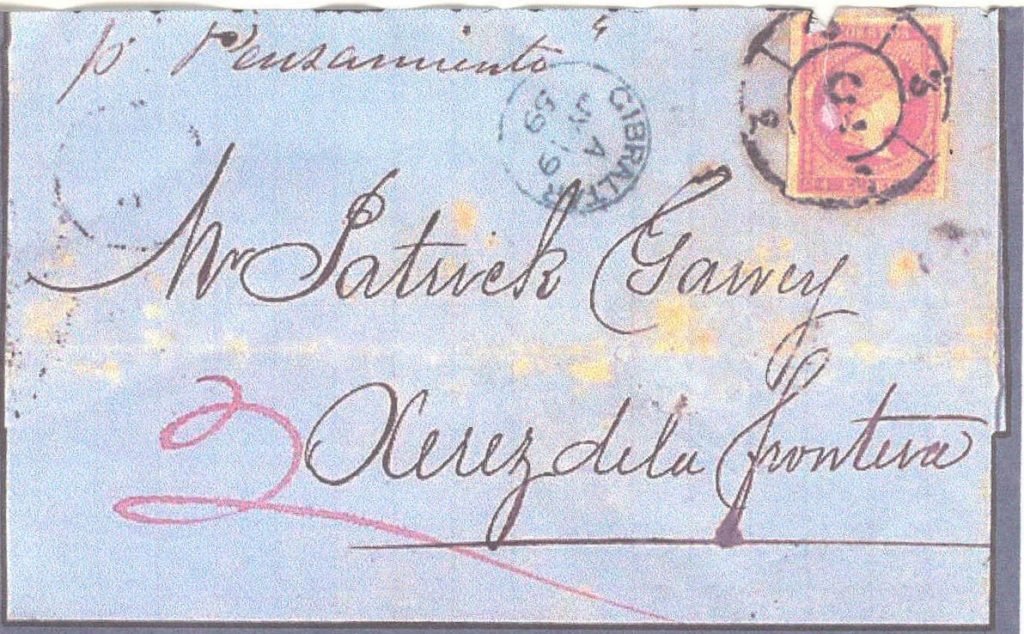 p. Pensamiento "
GIBRALTAR
A
JY 19
59
CORREOS
Mr Patrick Garvey
Xerez de la Frontera
2